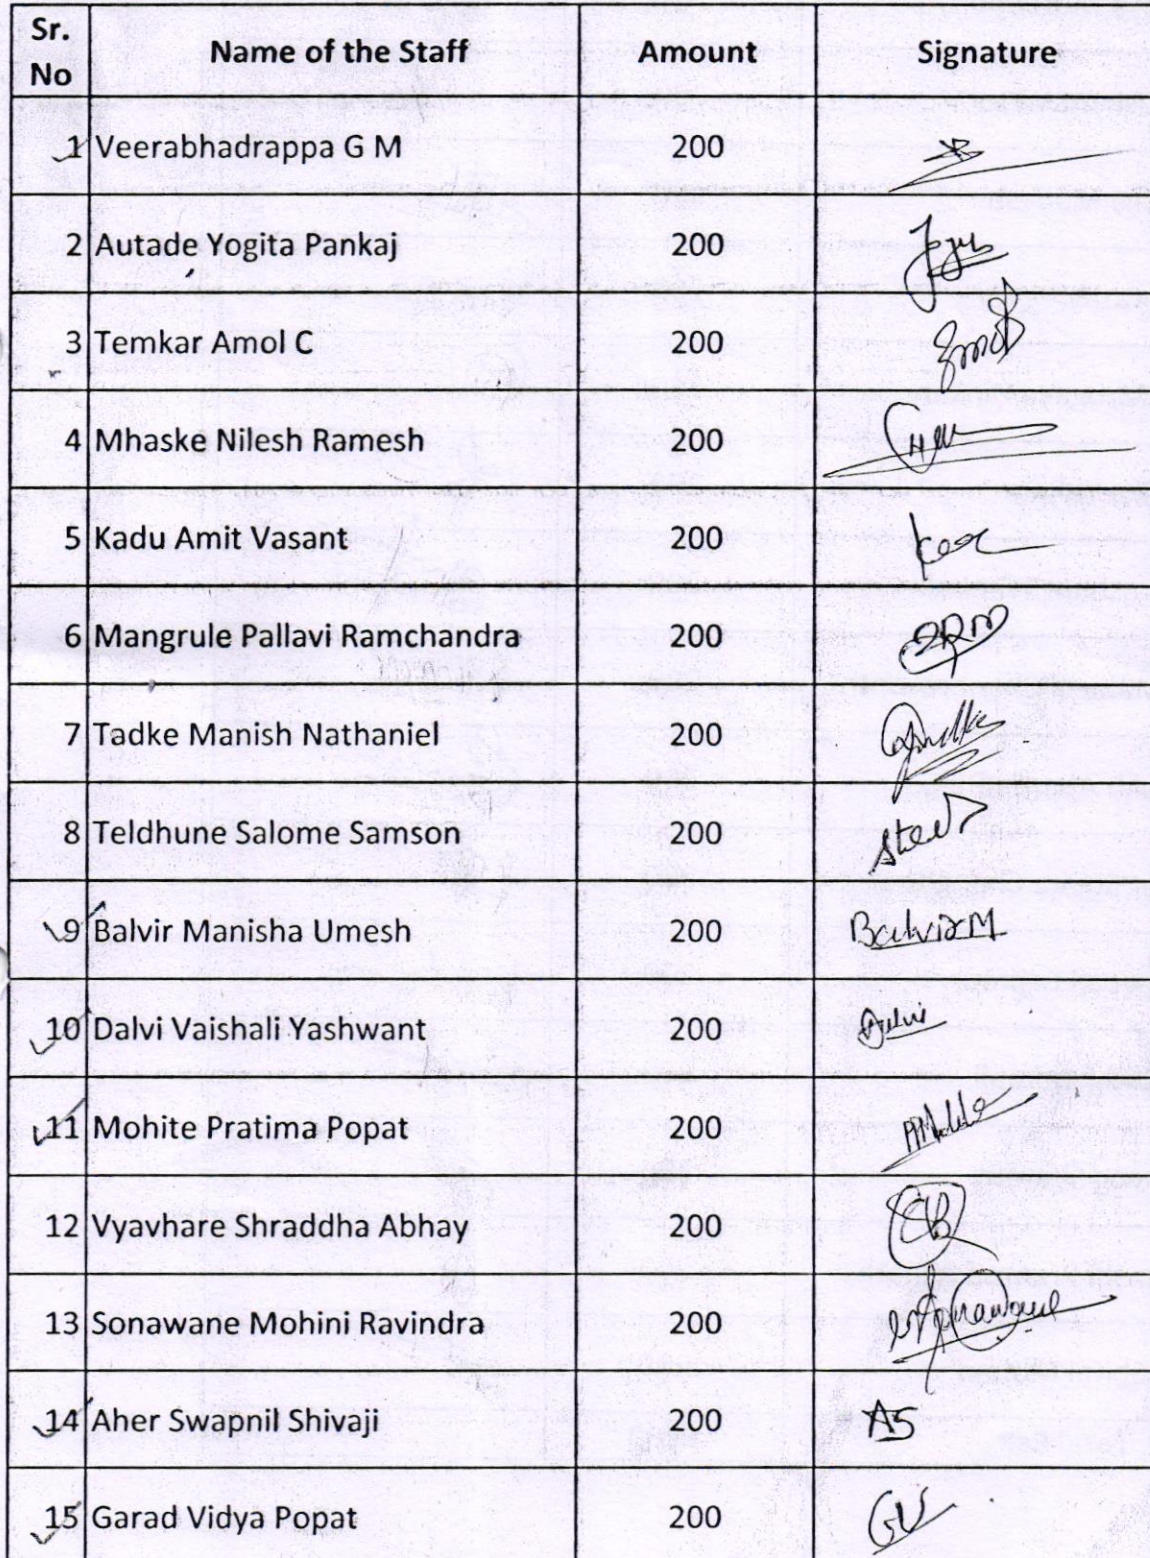 Sr. No Name of the Staff Amount Signature
1 Veerabhadrappa G M 200
2 Autade Yogita Pankaj 200
3 Temkar Amol C 200
4 Mhaske Nilesh Ramesh 200
5 Kadu Amit Vasant 200
6 Mangrule Pallavi Ramchandra 200
7 Tadke Manish Nathaniel 200
8 Teldhune Salome Samson 200
9 Balvir Manisha Umesh 200 Balvir M
10 Dalvi Vaishali Yashwant 200 Dalvi
11 Mohite Pratima Popat 200
12 Vyavhare Shraddha Abhay 200
13 Sonawane Mohini Ravindra 200
14 Aher Swapnil Shivaji 200 AS
15 Garad Vidya Popat 200 GV